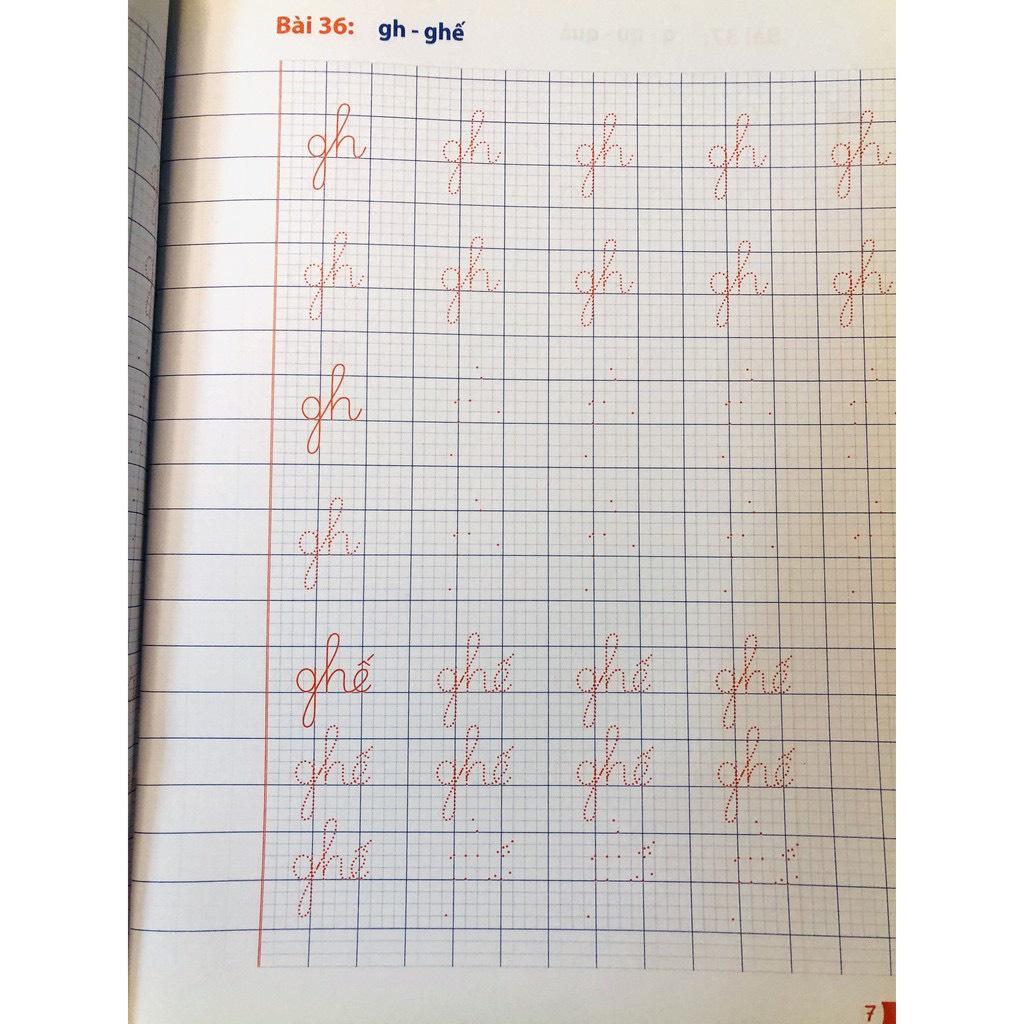 Bài 36: gh - ghế
gh gh gh gh gh
gh gh gh gh gh
gh
gh
ghế ghế ghế ghế
ghế ghế ghế ghế
ghế
7